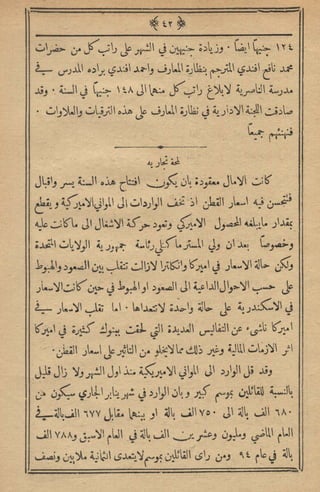 ﴿ ٤٢ ﴾
١٢٤ جنيها ايضا . وزيادة جنيهين في الشهر على راتب كل من حضرات
محمد نافع افندي المترجم بنظارة المعارف واحمد افندي براده المدرس في
مدرسة الناصرية لابلاغ راتب كل منهما الى ١٤٨ جنيها في السنة . وقد
صادقت اللجنة الادارية في نظارة المعارف على هذه الترقيات والعلاوات .
فنهنئهم جميعا
لمحة تجاريه
كانت الامال معقودة بان يكون افتتاح هذه السنة يسر واقبال
فتتحسن فيه اسعار القطن اذ تخف الواردات الى المواني الاميركية و يقطع
بمقدار مايبلغه المحصول الاميركي وتعود حركة الاشغال الى ماكانت عليه
وخصوصا بعد ان ولي المستر ماكنلي رئاسة جمهورية الولايات المتحدة
ولكن حالة الاسعار في اميركا وانكلترا لازالت تتقلب بين الصعود والهبوط
على حسب الاحوال الداعية الى الصعود او الهبوط في حين كانت الاسعار
في الاسكندرية على حالة واحدة لاتتعداها . اما تقلب الاسعار في
اميركا ناشئ عن التفاليس العديدة التي لحقت ببنوك كثيرة في اميركا
اثر الازمات المالية وغير ذلك مما لايخلو من التأثير على اسعار القطن .
وقد قل الوارد الى المواني الاميريكية منذ اول الشهر ولا زال قليل
بالنسبة للقائلين بموسم كبير و بان الوارد في شهر يناير الجاري سيكون من
٦٨٠ الف بالة الى ٧٥٠ الف بالة او بينهما مقابل ٦٧٧ الف بالة في
العام الماضي ومليون وعشرين الف بالة في العام الاسبق و ٧٨٨ الف
بالة في عام ٩٤ ومن راى القائلين بموسم لا يتعدى الثمانية ملايين ونصف